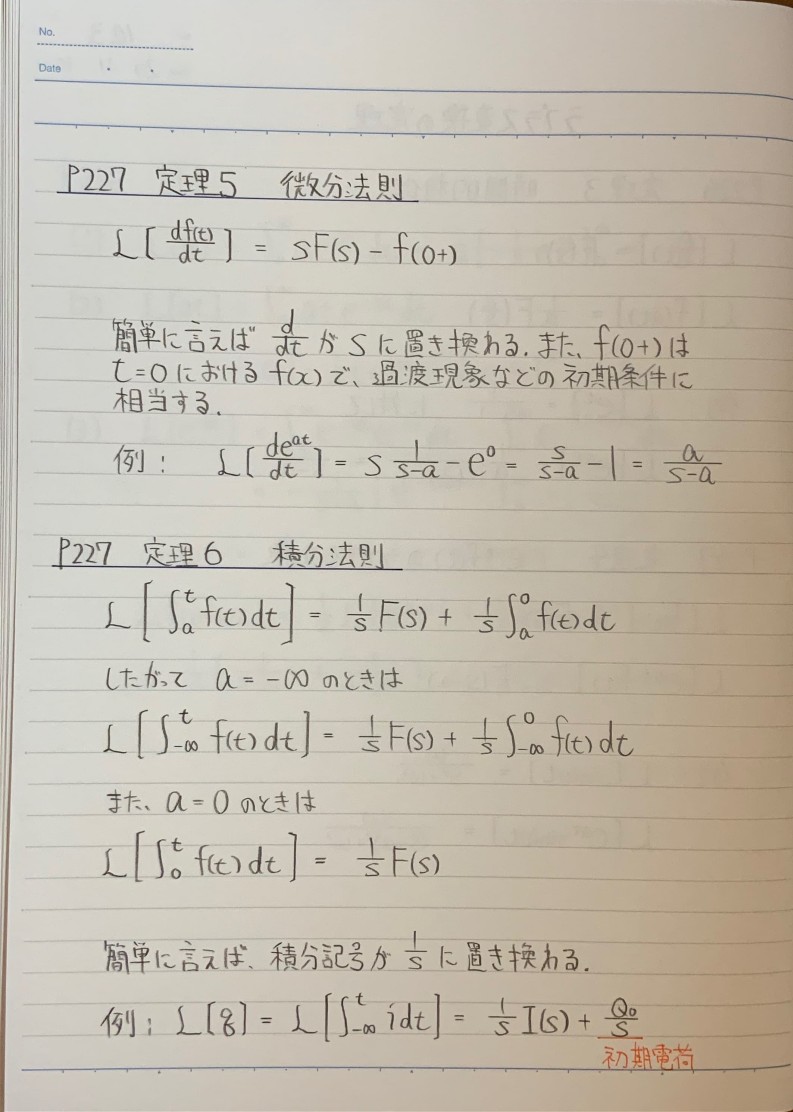 No.
Date
P227 定理5 微分法則
L[df(t)/dt] = sF(s) − f(0+)
簡単に言えば d/dt がsに置き換わる. また、f(0+)は
t=0におけるf(x)で、過渡現象などの初期条件に
相当する.
例: L[de^at/dt] = s 1/(s−a) − e^0 = s/(s−a) − 1 = a/(s−a)
P227 定理6 積分法則
L[∫_a^t f(t)dt] = 1/s F(s) + 1/s ∫_a^0 f(t)dt
したがって a = −∞ のときは
L[∫_−∞^t f(t)dt] = 1/s F(s) + 1/s ∫_−∞^0 f(t)dt
また、a = 0 のときは
L[∫_0^t f(t)dt] = 1/s F(s)
簡単に言えば、積分記号が 1/s に置き換わる.
例: L[q] = L[∫_−∞^t idt] = 1/s I(s) + Q₀/s
初期電荷